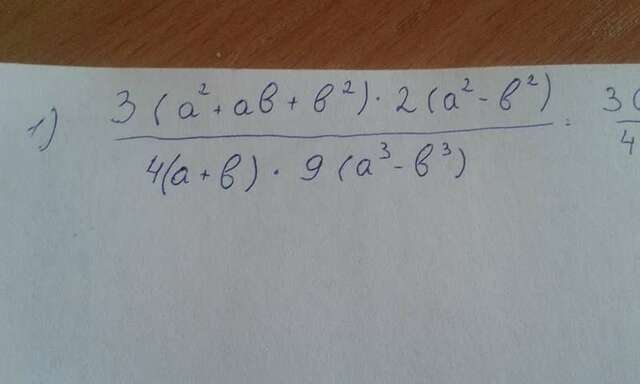 1) 3 (a² + aв + в²) · 2 (a² - в²) = 3 (
4(a + в) · 9 (a³ - в³) 4